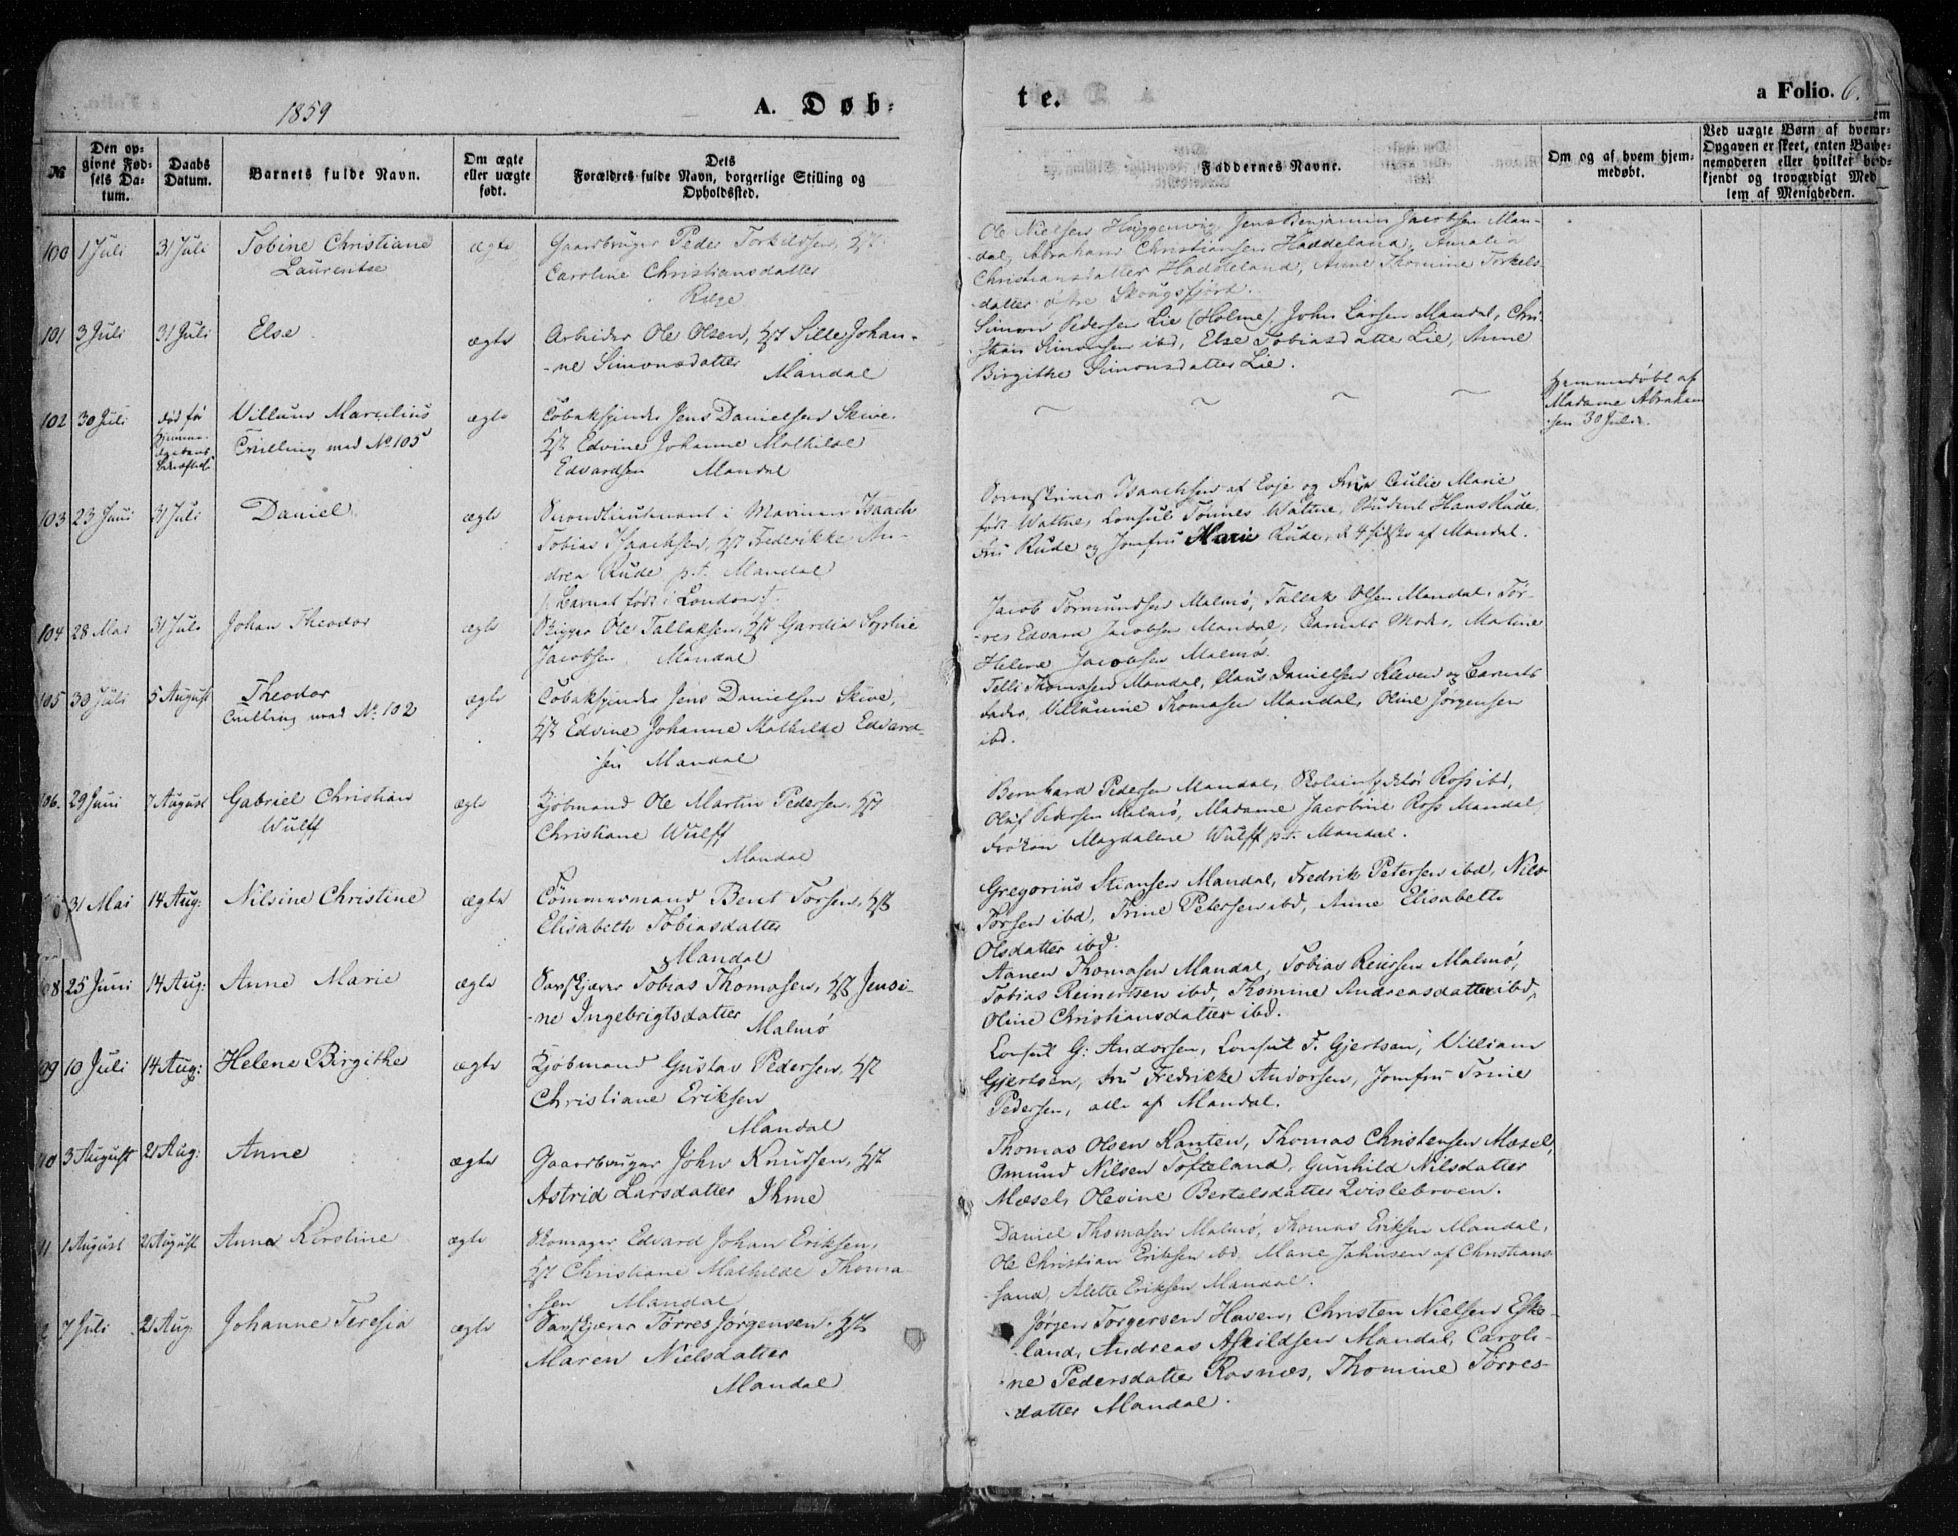 1859
A. Døb-
te.
a Folio. 6.
№
Den op-
givne Fød-
sels Da-
tum.
Daabs
Datum.
Barnets fulde Navn.
Om ægte
eller uægte
født.
Dets
Forældres fulde Navn, borgerlige Stilling og
Opholdssted.
Faddernes Navne.
Om og af hvem hjem-
medøbt.
Ved uægte Børn af hvem
Opgaven er skeet, enten Barne-
nemoderen eller hvilket
kjendt og troværdigt Med
lem af Menigheden.
100 1 Juli 31 Juli Tobine Christiane
Laurentse
ægte
Gaardbruger Peder Torkildsen, Hst
Caroline Christiansdatter
Ole Nielsen Jens Benjamin Jacobsen Man-
dal, Abraham Christiansen Haddeland, Amalia
Christiansdatter Haddeland, Anne Thomine Torkels-
datter øfre Skougsfjord.
101 3 Juli 31 Juli Else
ægte
Arbeider Ole Olsen, Hst Sille Johan-
-ne Simonsdatter Mandal
Simon Pedersen Lie (Holme), John Larsen Mandal, Chri-
stian Simonsen ibd, Else Tobiasdatter Lie, Anne
Birgithe Simonsdatter Lie.
102 30 Juli
død før
Villum Marcilius
Tvilling med No 105
ægte
Tobaksspinder Jens Danielsen Skive,
Hst Edvine Johanne Mathilde
Edvardsen Mandal
Hjemmedøbt af
Madame Abraham
sen 30 Juli.
103 23 Juni 31 Juli Daniel
ægte
Secondlieutenant i Marinen Isaach
Tobias Isaachsen, Hst Frederikke An-
drea Rude p.t. Mandal
(Barnet født i London).
Sorenskriver Isaachsen af Evje og Frue Cecilie Marie
født Wattne, Consul Tönnes Wattne, Student Hans Rude,
Fru Rude og Jomfru Marie Rude, de 4 sidste af Mandal.
104 28 Mai 31 Juli Johan Theodor
ægte
Skipper Ole Tallaksen, Hst Gardia Sophie
Jacobsen Mandal
Jacob Tormundsen Malmø, Tallak Olsen Mandal, Tör-
-res Edvard Jacobsen Mandal, Barnets Moder, Martine
Helene Jacobsen Malmø.
105 30 Juli 5 August Theodor
Tvilling med No 102
ægte
Tobaksspinder Jens Danielsen Skive,
Hst Edvine Johanne Mathilde Edvard-
sen Mandal
Telli Thomasen Mandal, Claus Danielsen Kleven og Barnets
Fader, Villumine Thomasen Mandal, Oline Jørgensen
ibd.
106. 29 Juni 7 August Gabriel Christian
Wulff
ægte
Kjöbmand Ole Martin Pedersen, Hst
Christiane Wulff
Mandal
Bernhard Pedersen Mandal, Ross ibd,
Oluf Pedersen Malmø, Madame Jacobine Ross Mandal,
Frøken Magdalene Wulff p.t. Mandal.
31 Mai 14 Aug: Nilsine Christine
ægte
Tömmermand Bent Torsen, Hst
Elisabeth Tobiasdatter
Mandal
Gregorius Stiansen Mandal, Fredrik Petersen ibd, Nils
Torsen ibd, Trine Petersen ibd, Anne Elisabeth
Olsdatter ibd.
8 25 Juni 14 Aug: Anne Marie
ægte
Savskjærer Tobias Thomasen, Hst Jensi-
-ne Ingebrigtsdatter Malmø
Aanen Thomasen Mandal, Tobias Reiersen Malmø,
Tobias Reinertsen ibd, Thomine Andreasdatter ibd,
Oline Christiansdatter ibd.
09 10 Juli 14 Aug: Helene Birgithe
ægte
Kjöbmand Gustav Pedersen, Hst
Christiane Eriksen
Mandal
Consul G. Andorsen, Consul F. Gjertsen, Villiam
Gjertsen, Fru Fredrikke Andorsen, Jomfru Trine
Pedersen, alle af Mandal.
10 3 August 21 Aug: Anne
ægte
Gaardbruger John Knudsen, Hst
Astrid Larsdatter Ihme
Thomas Olsen Kanten, Thomas Christensen Mæsel,
Omund Nilsen Tofteland, Gunhild Nilsdatter
Mæsel, Olevine Bertelsdatter Qvislebroen.
11 1 August 21 August Anna Karoline
ægte
Skomager Edvard Johan Eriksen,
Hst Christiane Mathilde Thoma-
-sen Mandal
Daniel Thomasen Malmø, Thomas Eriksen Mandal,
Ole Christian Eriksen ibd, Marie Jahnsen af Christians
sand, Alette Eriksen Mandal.
2 7 Juli 21 Aug: Johanne Teresia
ægte
Savskjærer Törres Jørgensen, Hst
Maren Nielsdatter
Mandal
Jørgen Torgersen Haven, Christen Nielsen Eske-
-land, Andreas Askildsen Mandal, Caroli-
-ne Pedersdatter Rosnæs, Thomine Törres-
-datter Mandal.